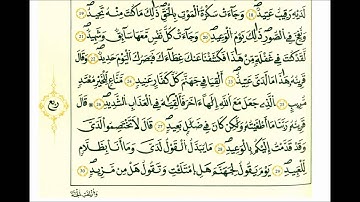 لَدَيْهِ رَقِيبٌ عَتِيدٌ ١٨ وَجَاءَتْ سَكْرَةُ الْمَوْتِ بِالْحَقِّ ذَٰلِكَ مَا كُنتَ مِنْهُ تَحِيدُ ١٩
وَنُفِخَ فِي الصُّورِ ذَٰلِكَ يَوْمُ الْوَعِيدِ ٢٠ وَجَاءَتْ كُلُّ نَفْسٍ مَّعَهَا سَائِقٌ وَشَهِيدٌ ٢١
لَّقَدْ كُنتَ فِي غَفْلَةٍ مِّنْ هَٰذَا فَكَشَفْنَا عَنكَ غِطَاءَكَ فَبَصَرُكَ الْيَوْمَ حَدِيدٌ ٢٢ وَقَالَ
قَرِينُهُ هَٰذَا مَا لَدَيَّ عَتِيدٌ ٢٣ أَلْقِيَا فِي جَهَنَّمَ كُلَّ كَفَّارٍ عَنِيدٍ ٢٤ مَّنَّاعٍ لِّلْخَيْرِ مُعْتَدٍ
مُّرِيبٍ ٢٥ الَّذِي جَعَلَ مَعَ اللَّهِ إِلَٰهًا آخَرَ فَأَلْقِيَاهُ فِي الْعَذَابِ الشَّدِيدِ ٢٦ قَالَ
قَرِينُهُ رَبَّنَا مَا أَطْغَيْتُهُ وَلَٰكِن كَانَ فِي ضَلَالٍ بَعِيدٍ ٢٧ قَالَ لَا تَخْتَصِمُوا لَدَيَّ
وَقَدْ قَدَّمْتُ إِلَيْكُم بِالْوَعِيدِ ٢٨ مَا يُبَدَّلُ الْقَوْلُ لَدَيَّ وَمَا أَنَا بِظَلَّامٍ
لِّلْعَبِيدِ ٢٩ يَوْمَ يَقُولُ لِجَهَنَّمَ هَلِ امْتَلَأْتِ وَتَقُولُ هَلْ مِن مَّزِيدٍ ٣٠
وَأُزْلِفَتِ الْجَنَّةُ
ربع